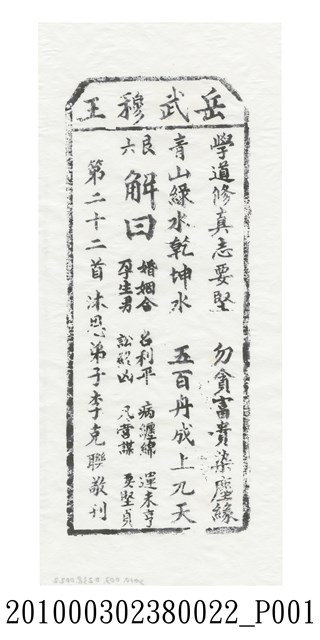 岳武穆王
學道修真志要堅 勿貪富貴染塵緣
青山綠水乾坤水 五百丹成上九天
艮六 解曰 婚姻合 名利平 病瀍綿 運未亨
孕生男 訟終凶 凡營謀 要堅貞
第二十二首 沐恩弟子李克聯敬刊
201000302380022_P001